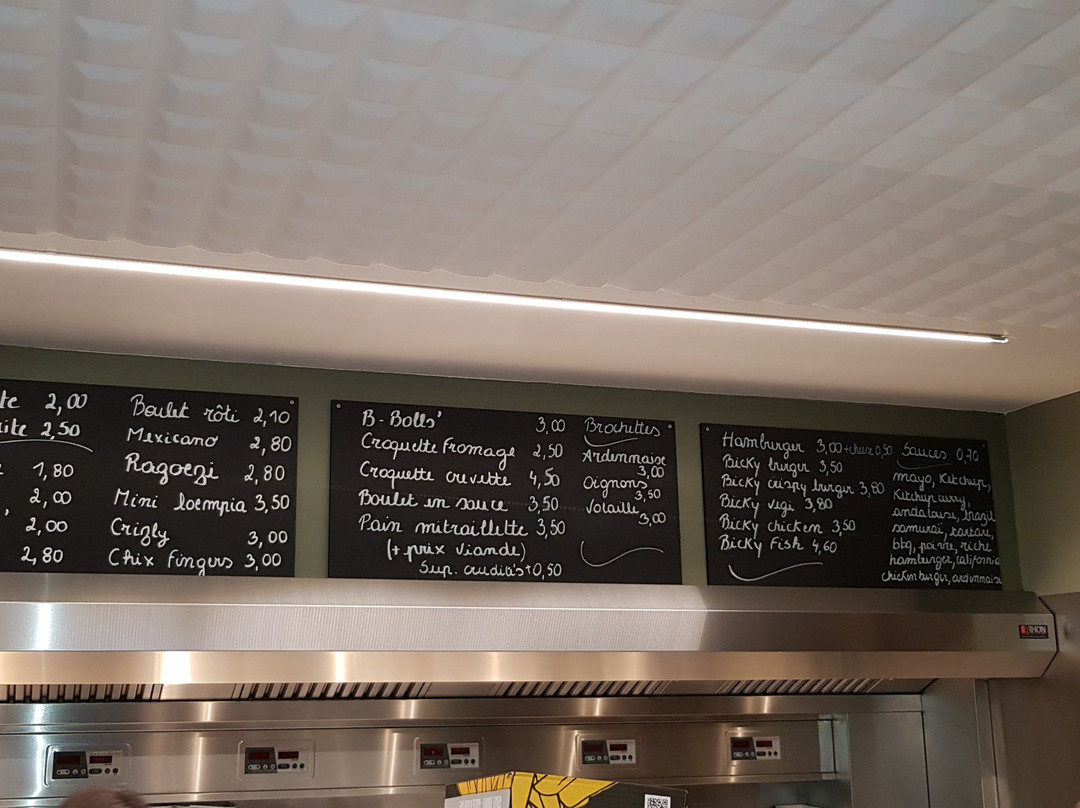 2,00
2,50
1,80
2,00
2,00
2,80
Boulet rôti 2,10
Mexicano 2,80
Ragoezi 2,80
Mini loempia 3,50
Crizly 3,00
Chix Fingers 3,00
B-Bolls' 3,00
Croquette fromage 2,50
Croquette crevette 4,50
Boulet en sauce 3,50
Pain mitraillette 3,50
(+ prix viande)
Sup. crudités +0,50
Brochettes
Ardennaise
3,00
Oignons
3,50
Volaille
3,00
Hamburger 3,00 +cheese 0,50
Bicky burger 3,50
Bicky crispy burger 3,80
Bicky vegi 3,80
Bicky chicken 3,50
Bicky Fish 4,60
Sauces 0,70
mayo, Ketchup,
Ketchup curry,
andalouse, brazil
samurai, tartare,
bbq, poivre, riche
hamburger, california
chicken burger, ardennaise